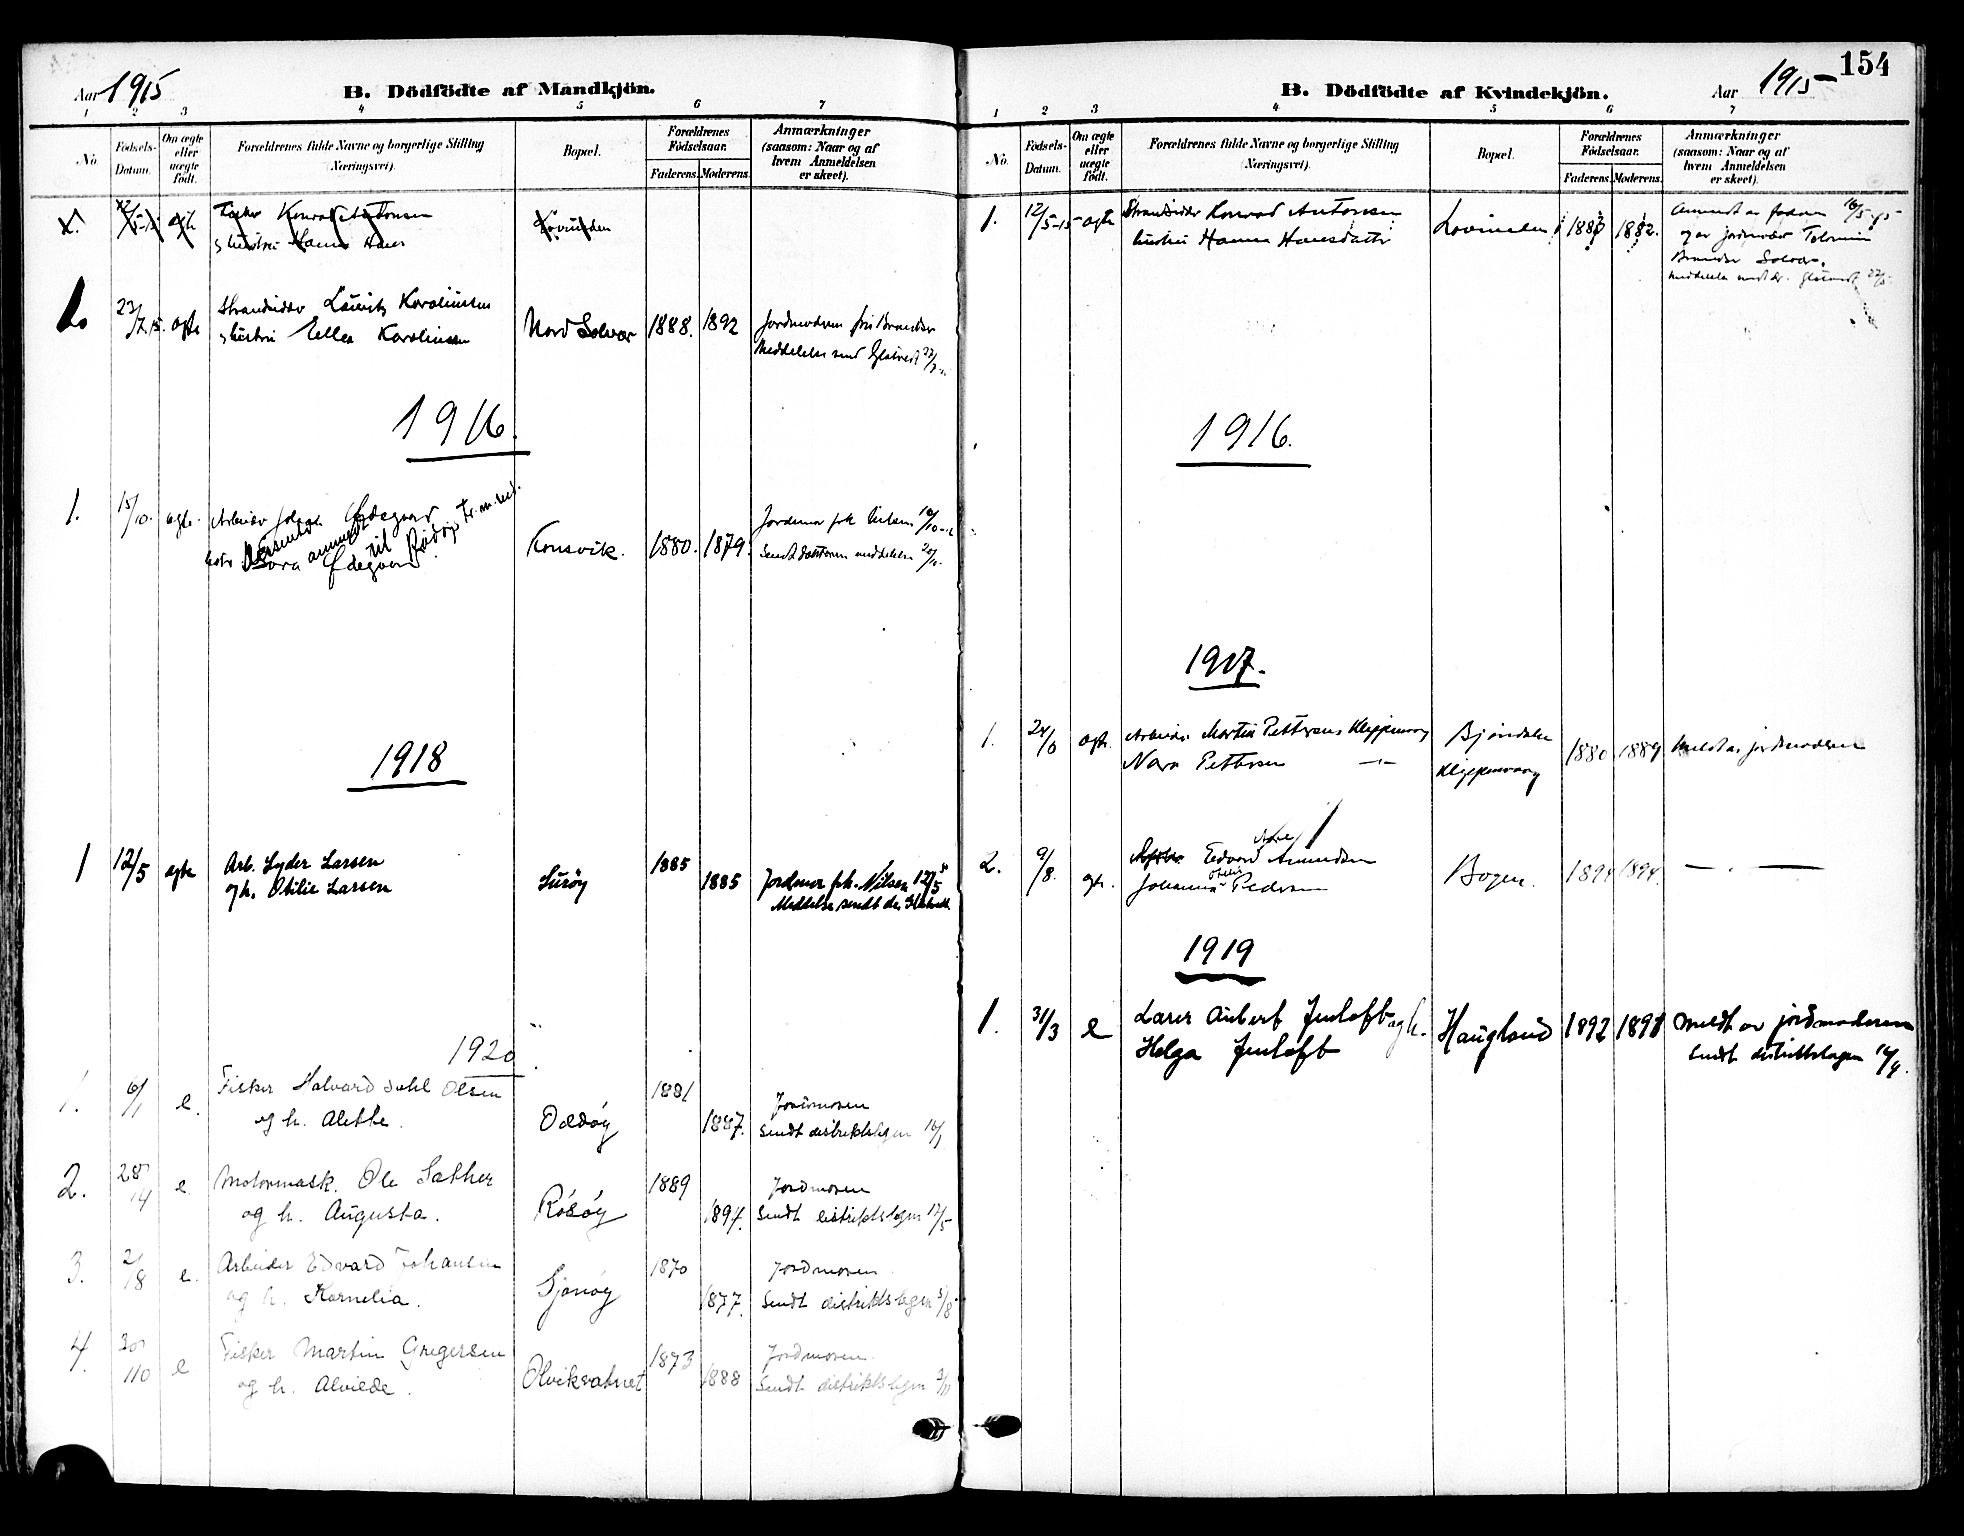 Aar 1915
B. Dödfödte af Mandkjön.
1 2 3 4 5 6 7
No.
Födsels-Datum.
Om ægte eller uægte födt.
Forældrenes fulde Navne og borgerlige Stilling (Næringsvei).
Bopæl.
Forældrenes Födselsaar.
Faderens. Moderens.
Anmærkninger (saasom: Naar og af hvem Anmeldelsen er skeet).
1. 12/5-15 ægte Konrad Antonsen
hustru Hanna Lovunden
1. 23/7.15. ægte Strandsidder Lauritz Karoliussen
hustru Ellen Karoliussen Nord Solvær 1888. 1892 Jordmoderen fru Brandsø
Meddelelse send Gløtvedt
1916.
1. 15/10. ægte. Arbeider Johan Ødegaard
Dora Ødegaard Konsvik. 1880. 1879. Jordmor frk. Nilsen
anmeldt til Rødøy
sendt doktoren meddelelse
1918
1 12/5 ægte Arb. Lyder Larsen
og h. Otilie Larsen Lurøy 1885 1885 Jordmor frk. Nilsen 12/5
Meddelse sendt dr.
1920
1. 6/1 e. Fisker Halvard Dahl Olsen
og h. Alette. Oldøy 1881 1887. Jordmoren
Sendt distriktslegen 16/1
2. 28/4 e. Motormask. Ole Sæther
og h. Augusta. Rósóy 1889 1894. Jordmoren
Sendt distriktslegen 12/5
3. 2/8 e. Arbeider Edvard Johansen
og h. Kornelia. Sjonøy 1870 1877. Jordmoren
Sendt distriktslegen 3/8
4. 30/10 e Fisker Martin Gregersen
og h. Alvilde. Olvikvatnet 1873 1888 Jordmoren.
Sendt distriktslegen 3/11
154
B. Dödfödte af Kvindekjön.
Aar 1915
1 2 3 4 5 6 7
No.
Födsels-Datum.
Om ægte eller uægte födt.
Forældrenes fulde Navne og borgerlige Stilling (Næringsvei).
Bopæl.
Forældrenes Födselsaar.
Faderens. Moderens.
Anmærkninger (saasom: Naar og af hvem Anmeldelsen er skeet).
1. 12/5-15 ægte Strandsidder Konrad Antonsen
hustru Hanna Hansdatter Lovunden 1882. Anmeldt av faderen 16/5-15
og av jordmoder
Brandsø Solvær.
meddelelse sendt dr. Gløtvedt
1916.
1917.
1. ægte. Arbeider Martin Pettersen Kleppevaag
Nora Pettersen Bjøndalen
Kleppevaag 1880 1889 Meldt av jordmoderen
2. 9/8. ægte. Edvard Amundsen
Johanna Pedersen Bogen. 1894 1894.
1919
1. 31/3 e Lærer Aubert Jentoft og h.
Helga Jentoft Haugland 1892 1891 Meldt av jordmoderen
Sendt distriktslægen 16/4.